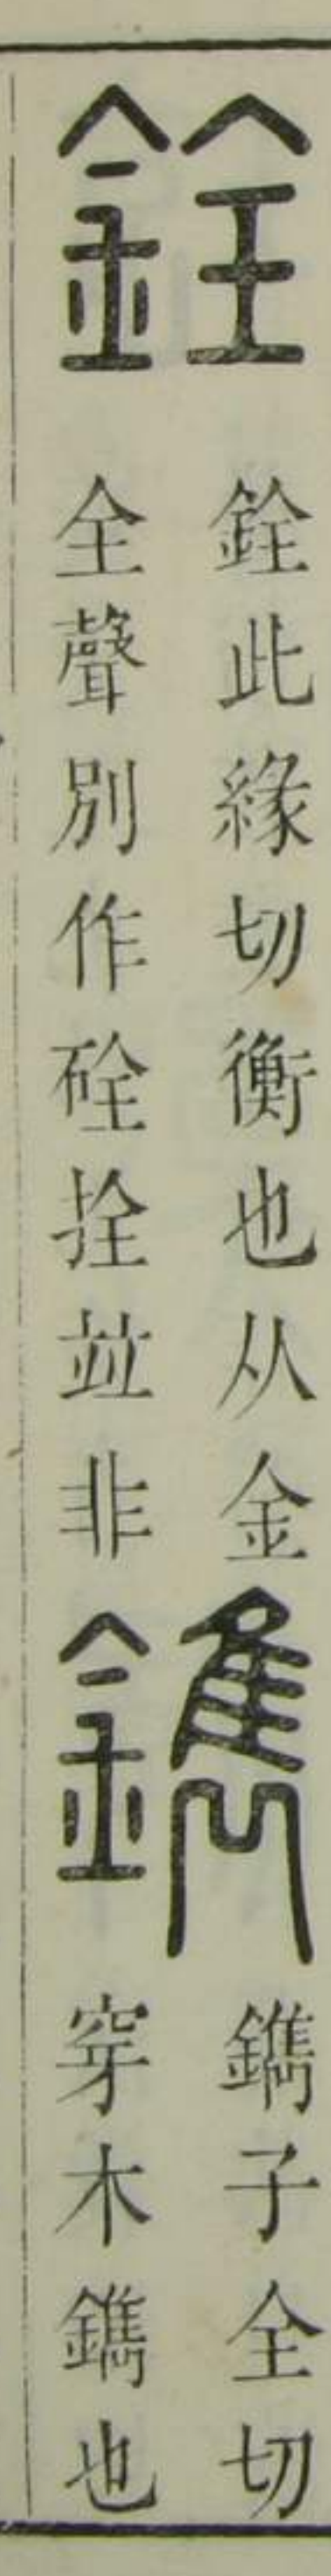 銓
銓此緣切衡也从金
全聲別作硂拴並非
鐫
鐫子全切
穿木鐫也